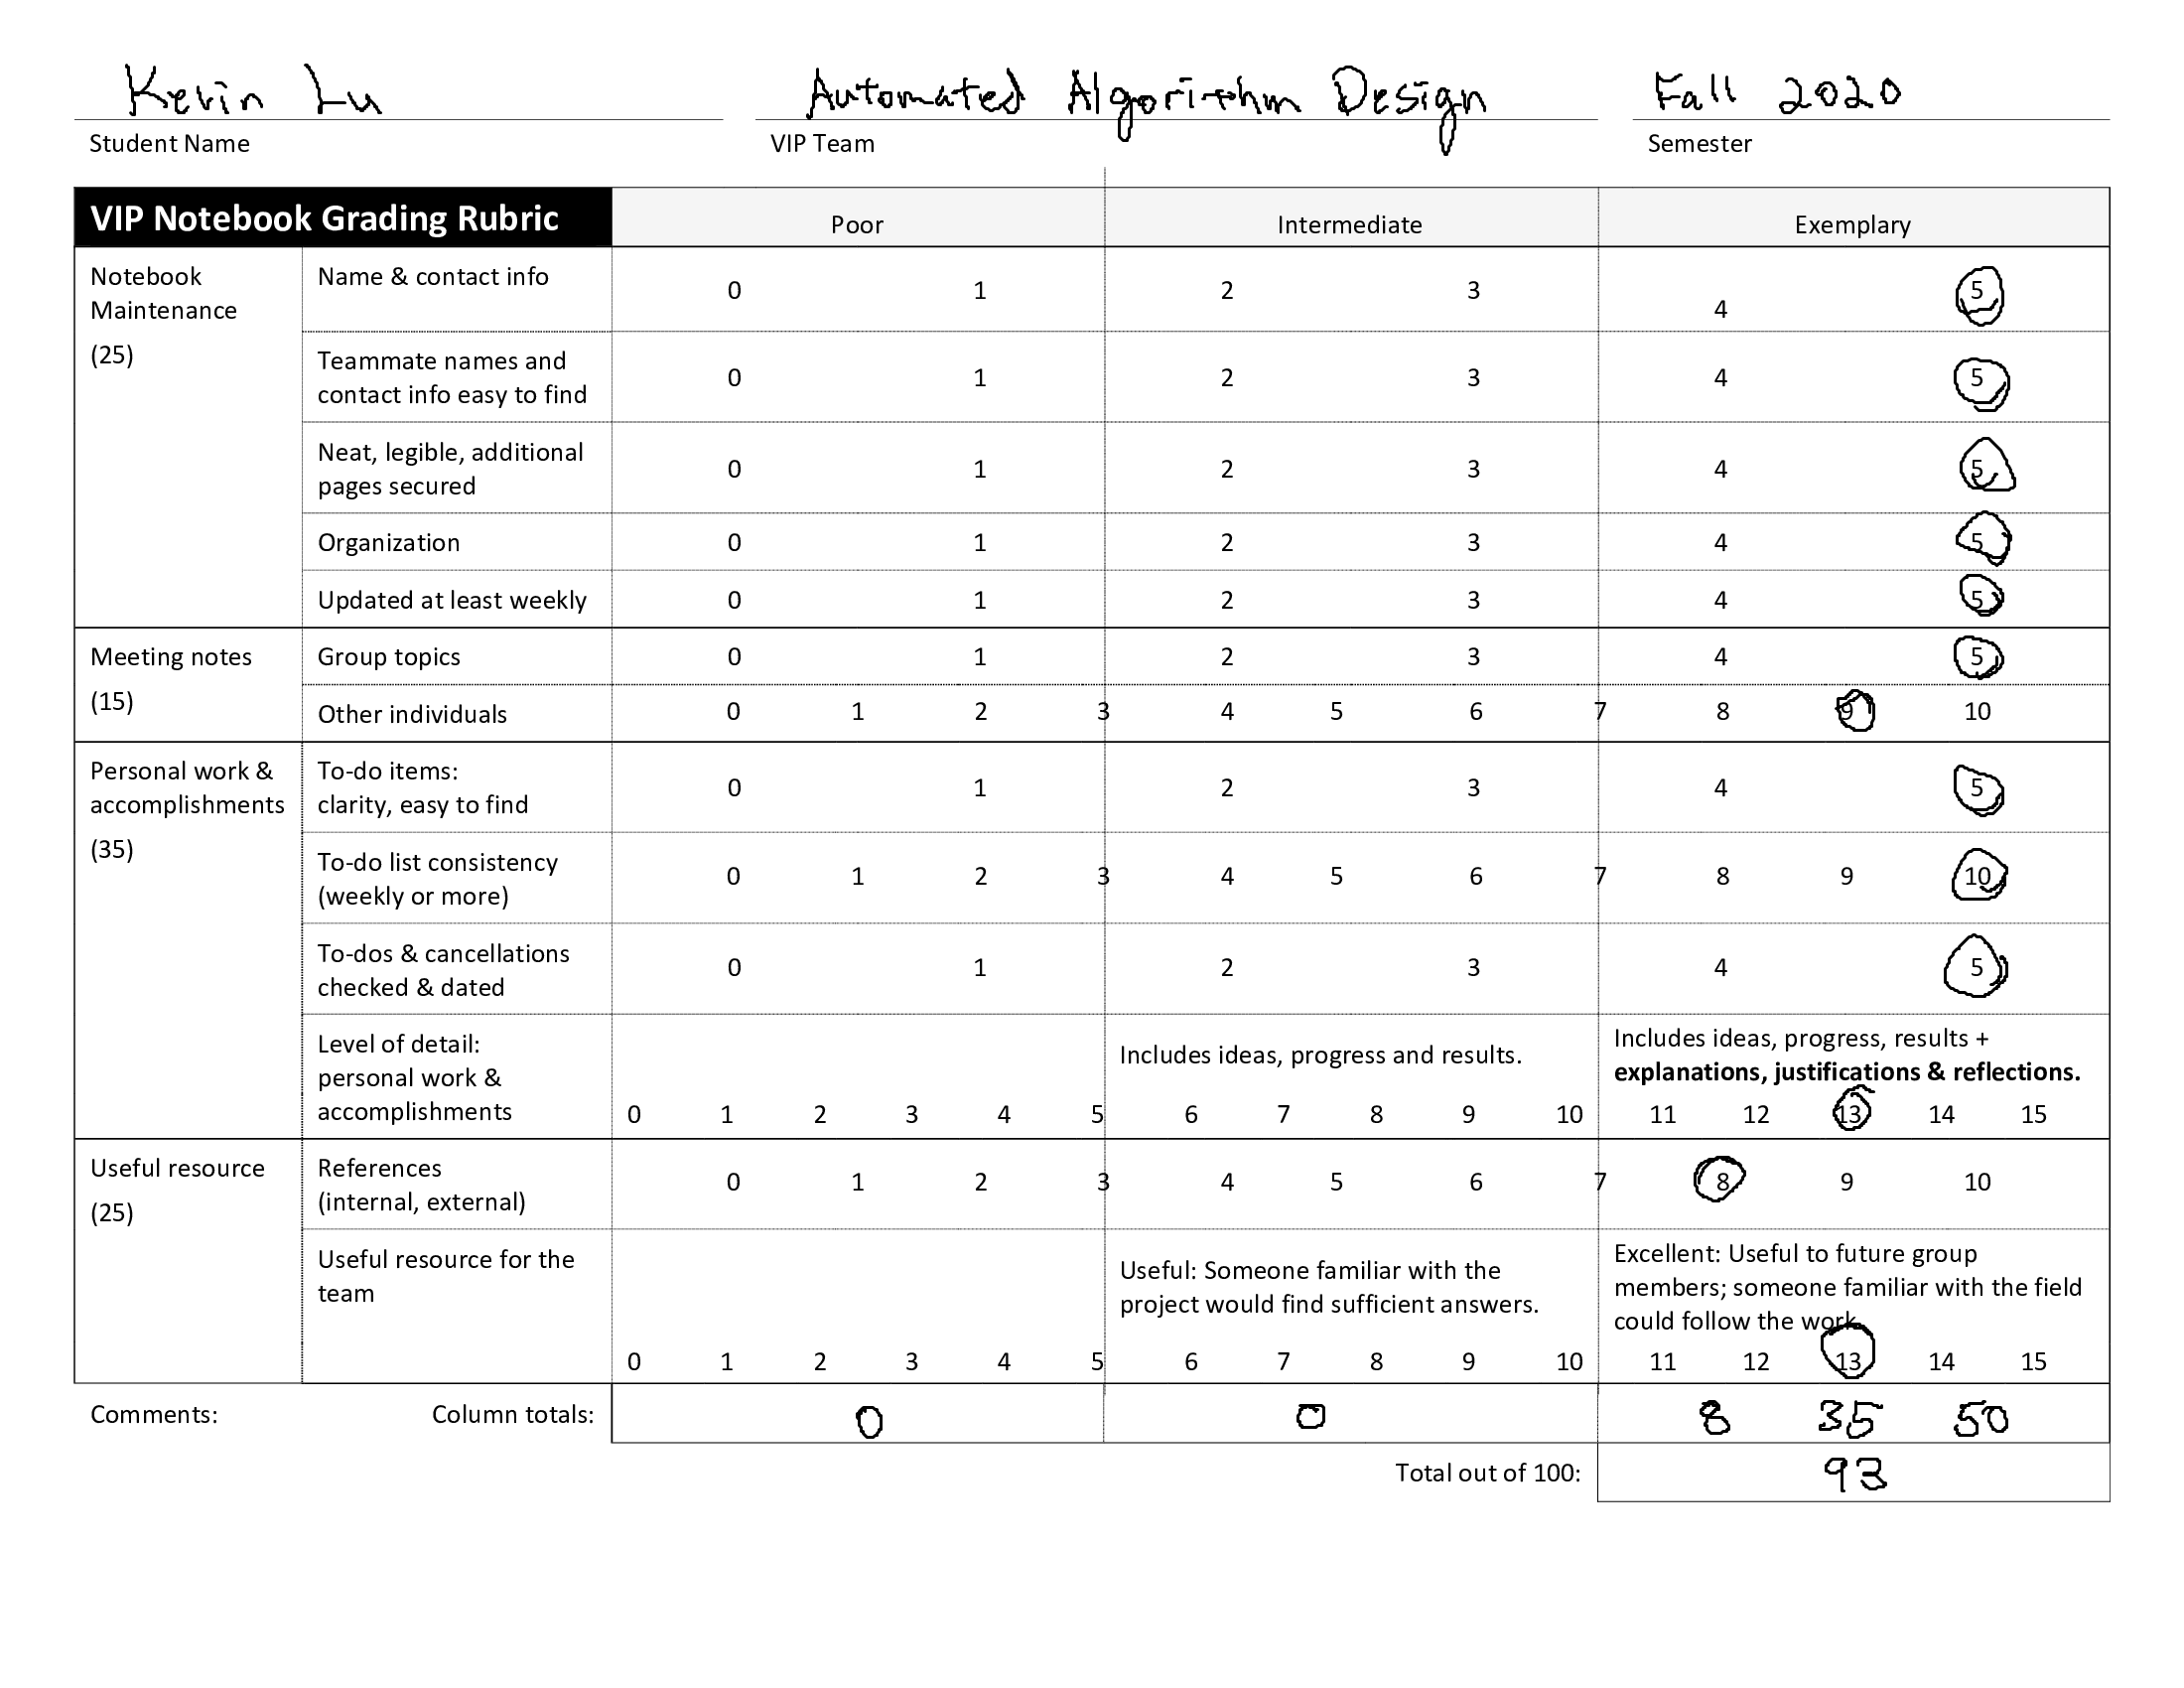 Kevin Lu Automated Algorithm Design Fall 2020
Student Name VIP Team Semester
VIP Notebook Grading Rubric Poor Intermediate Exemplary
Notebook Maintenance (25)
Name & contact info
0 1 2 3 4 5
Teammate names and
contact info easy to find
0 1 2 3 4 5
Neat, legible, additional
pages secured
0 1 2 3 4 5
Organization 0 1 2 3 4 5
Updated at least weekly 0 1 2 3 4 5
Meeting notes
(15)
Group topics 0 1 2 3 4 5
Other individuals 0 1 2 3 4 5 6 7 8 9 10
Personal work &
accomplishments
(35)
To-do items:
clarity, easy to find
0 1 2 3 4 5
To-do list consistency
(weekly or more)
0 1 2 3 4 5 6 7 8 9 10
To-dos & cancellations
checked & dated
0 1 2 3 4 5
Level of detail:
personal work &
accomplishments
Includes ideas, progress and results.
Includes ideas, progress, results +
explanations, justifications & reflections.
0 1 2 3 4 5 6 7 8 9 10 11 12 13 14 15
Useful resource
(25)
References
(internal, external)
0 1 2 3 4 5 6 7 8 9 10
Useful resource for the
team
Useful: Someone familiar with the
project would find sufficient answers.
Excellent: Useful to future group
members; someone familiar with the field
could follow the work.
0 1 2 3 4 5 6 7 8 9 10 11 12 13 14 15
Comments: Column totals: 0 0 8 35 50
Total out of 100: 93